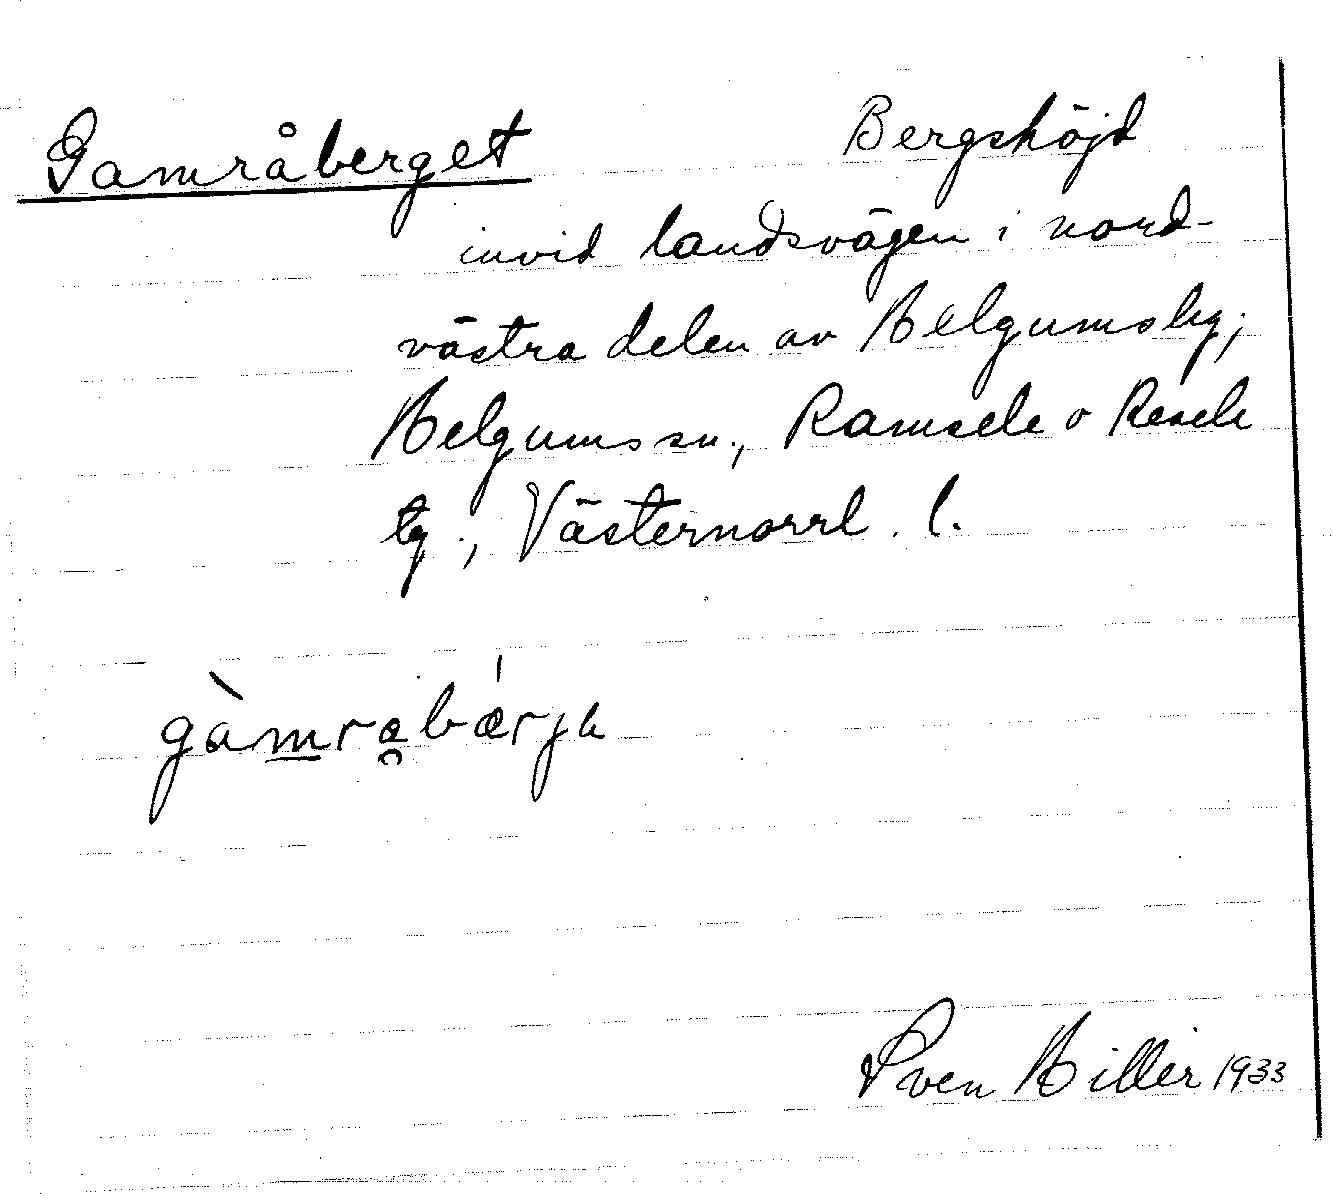 Gamråberget Bergshöjd
invid landsvägen i nord-
västra delen av Helgumsby;
Helgums sn., Ramsele o Resele
tg., Västernorrl. l.
gàmrabǽrjə
Sven Hillér 1933